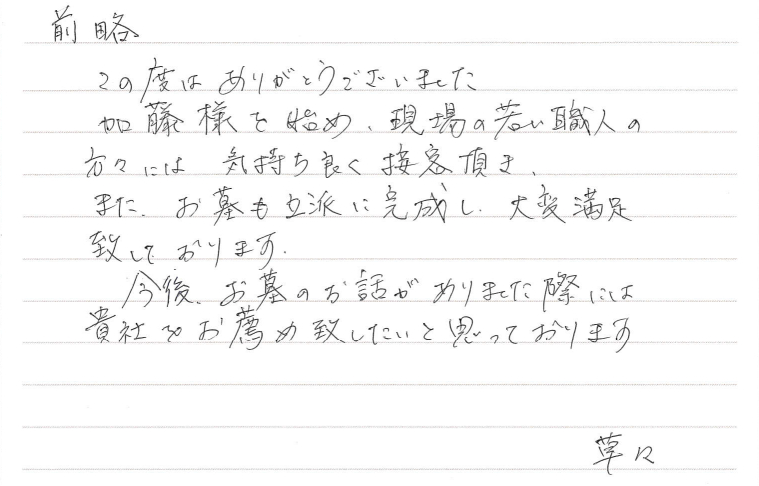 前略
この度はありがとうございました
加藤様を始め、現場の若い職人の
方々には 気持ち良く接客頂き、
また、お墓も立派に完成し、大変満足
致しております。
今後、お墓のお話がありました際には
貴社をお薦め致したいと思っております
草々